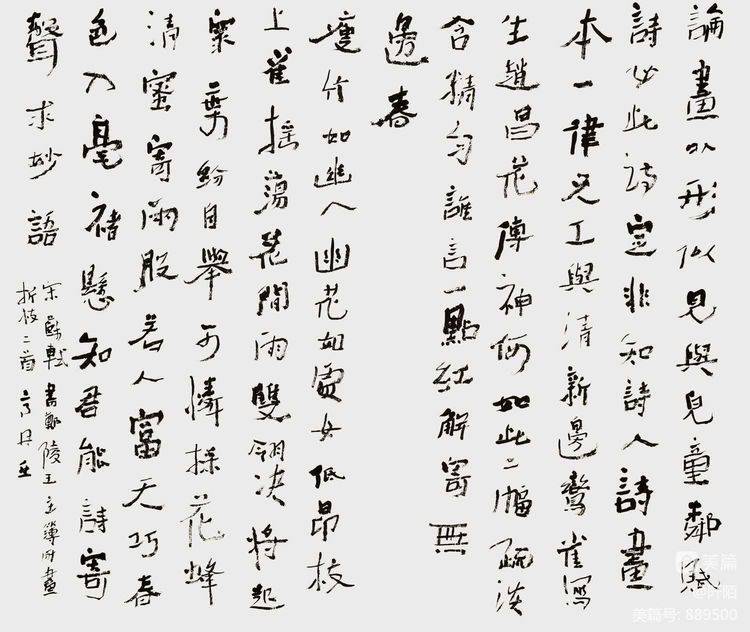 論畫以形似見與兒童鄰賦
詩必此詩定非知詩人詩畫
本一律天工與清新邊鸞雀寫
生趙昌花傳神何如此二幅疏淡
含精勻誰言一點紅解寄無
邊春
瘦竹如幽人幽花如處女低昂枝
上雀搖蕩花間雨雙翎決將起
眾葉紛自舉可憐採花蜂
清蜜寄兩股若人富天巧春
色入毫楮懸知君能詩寄
聲求妙語
宋蘇軾書鄢陵王主簿所畫
折枝二首
美篇
@阡陌
美篇号: 889500